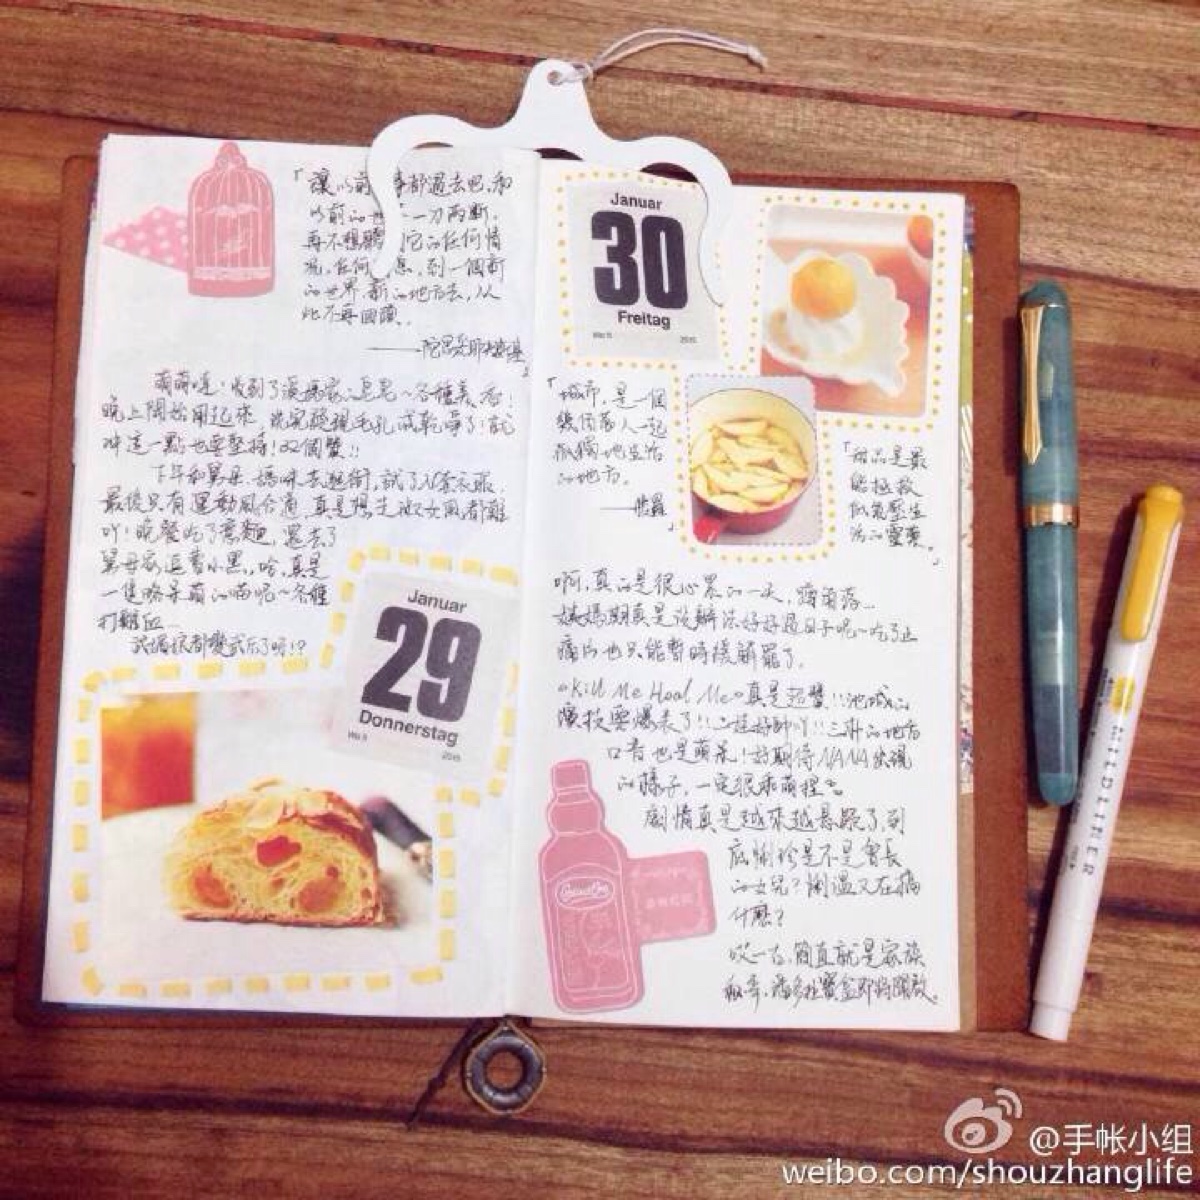 「讓以前 事都過去吧,和
以前的世 一刀兩斷,
再不想聽 它的任何情
況,任何 息,到一個新
的世界新的地方去,从
此不再回頭。
——陀思妥耶夫斯基
」
萌萌噠!收到了 ~各種美 !
晚上開始用起來,洗完發現毛孔 乾淨了!就
冲這一點也要堅持!双個贊!!
下午和舅母、媽咪去逛街,試了N套衣服,
最後只有運動風合適,真是想走淑女風都難
吖!晚餐吃了 麵,還去了
舅母家逗 小黑,哈,真是
一隻 呆萌的喵呢~各種
打雞血...
都變 了呀!?
Januar
29
Donnerstag
Wo 5
2015
Januar
30
Freitag
Wo 5
2015
「城市,是一個
幾百萬人一起
孤獨地生活
的地方。
—梭羅
」
「甜品是最
能拯救
低氣壓生
活的靈藥。
」
啊,真的是很心累的一天,蹲角落...
姨媽期真是沒辦法好好過日子呢~吃了止
痛片也只能暫時緩解罷了。
《Kill Me Heal Me》真是超贊!!池城的
演技要爆表了!! 好帥吖!! 的地方
口音也是萌呆!好期待NANA出現
的樣子,一定很 萌裡~
劇情真是越來越懸疑了,到
底 珍是不是會長
的女兒? 又在搞
什麼?
哎一古,簡直就是家族
秘辛,潘多拉寶盒即將開啟。
MILDLINER
@手帐小组
weibo.com/shouzhanglife